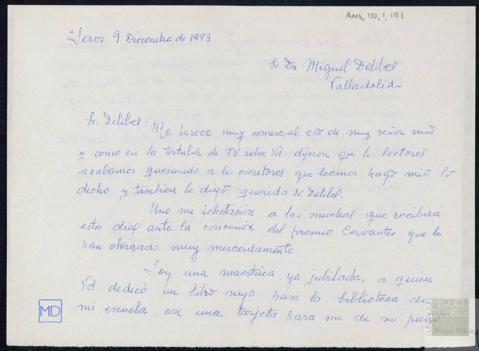 AMD, 110, 1, 191
Jeros 9 Diciembre de 1993
Sr. Dn. Miguel Delibes
Valladolid
Sr. Delibes: Me parece muy comercial eso de muy señor mio
y como en la tertulia de TV sobre Vd. dijeron que los lectores
acabamos queriendo a los escritores que leemos, hago mio lo
dicho y tambien le digo, querido Sr. Delibes.
Uno mi felicitación a las muchas que recibirá
estos dias ante la concesión del premio Cervantes que le
han otorgado muy merecidamente.
Soy una maestrica, ya jubilada, a quien
Vd. dedicó un libro suyo para la biblioteca de
mi escuela, con una tarjeta para mi de su puño
MD